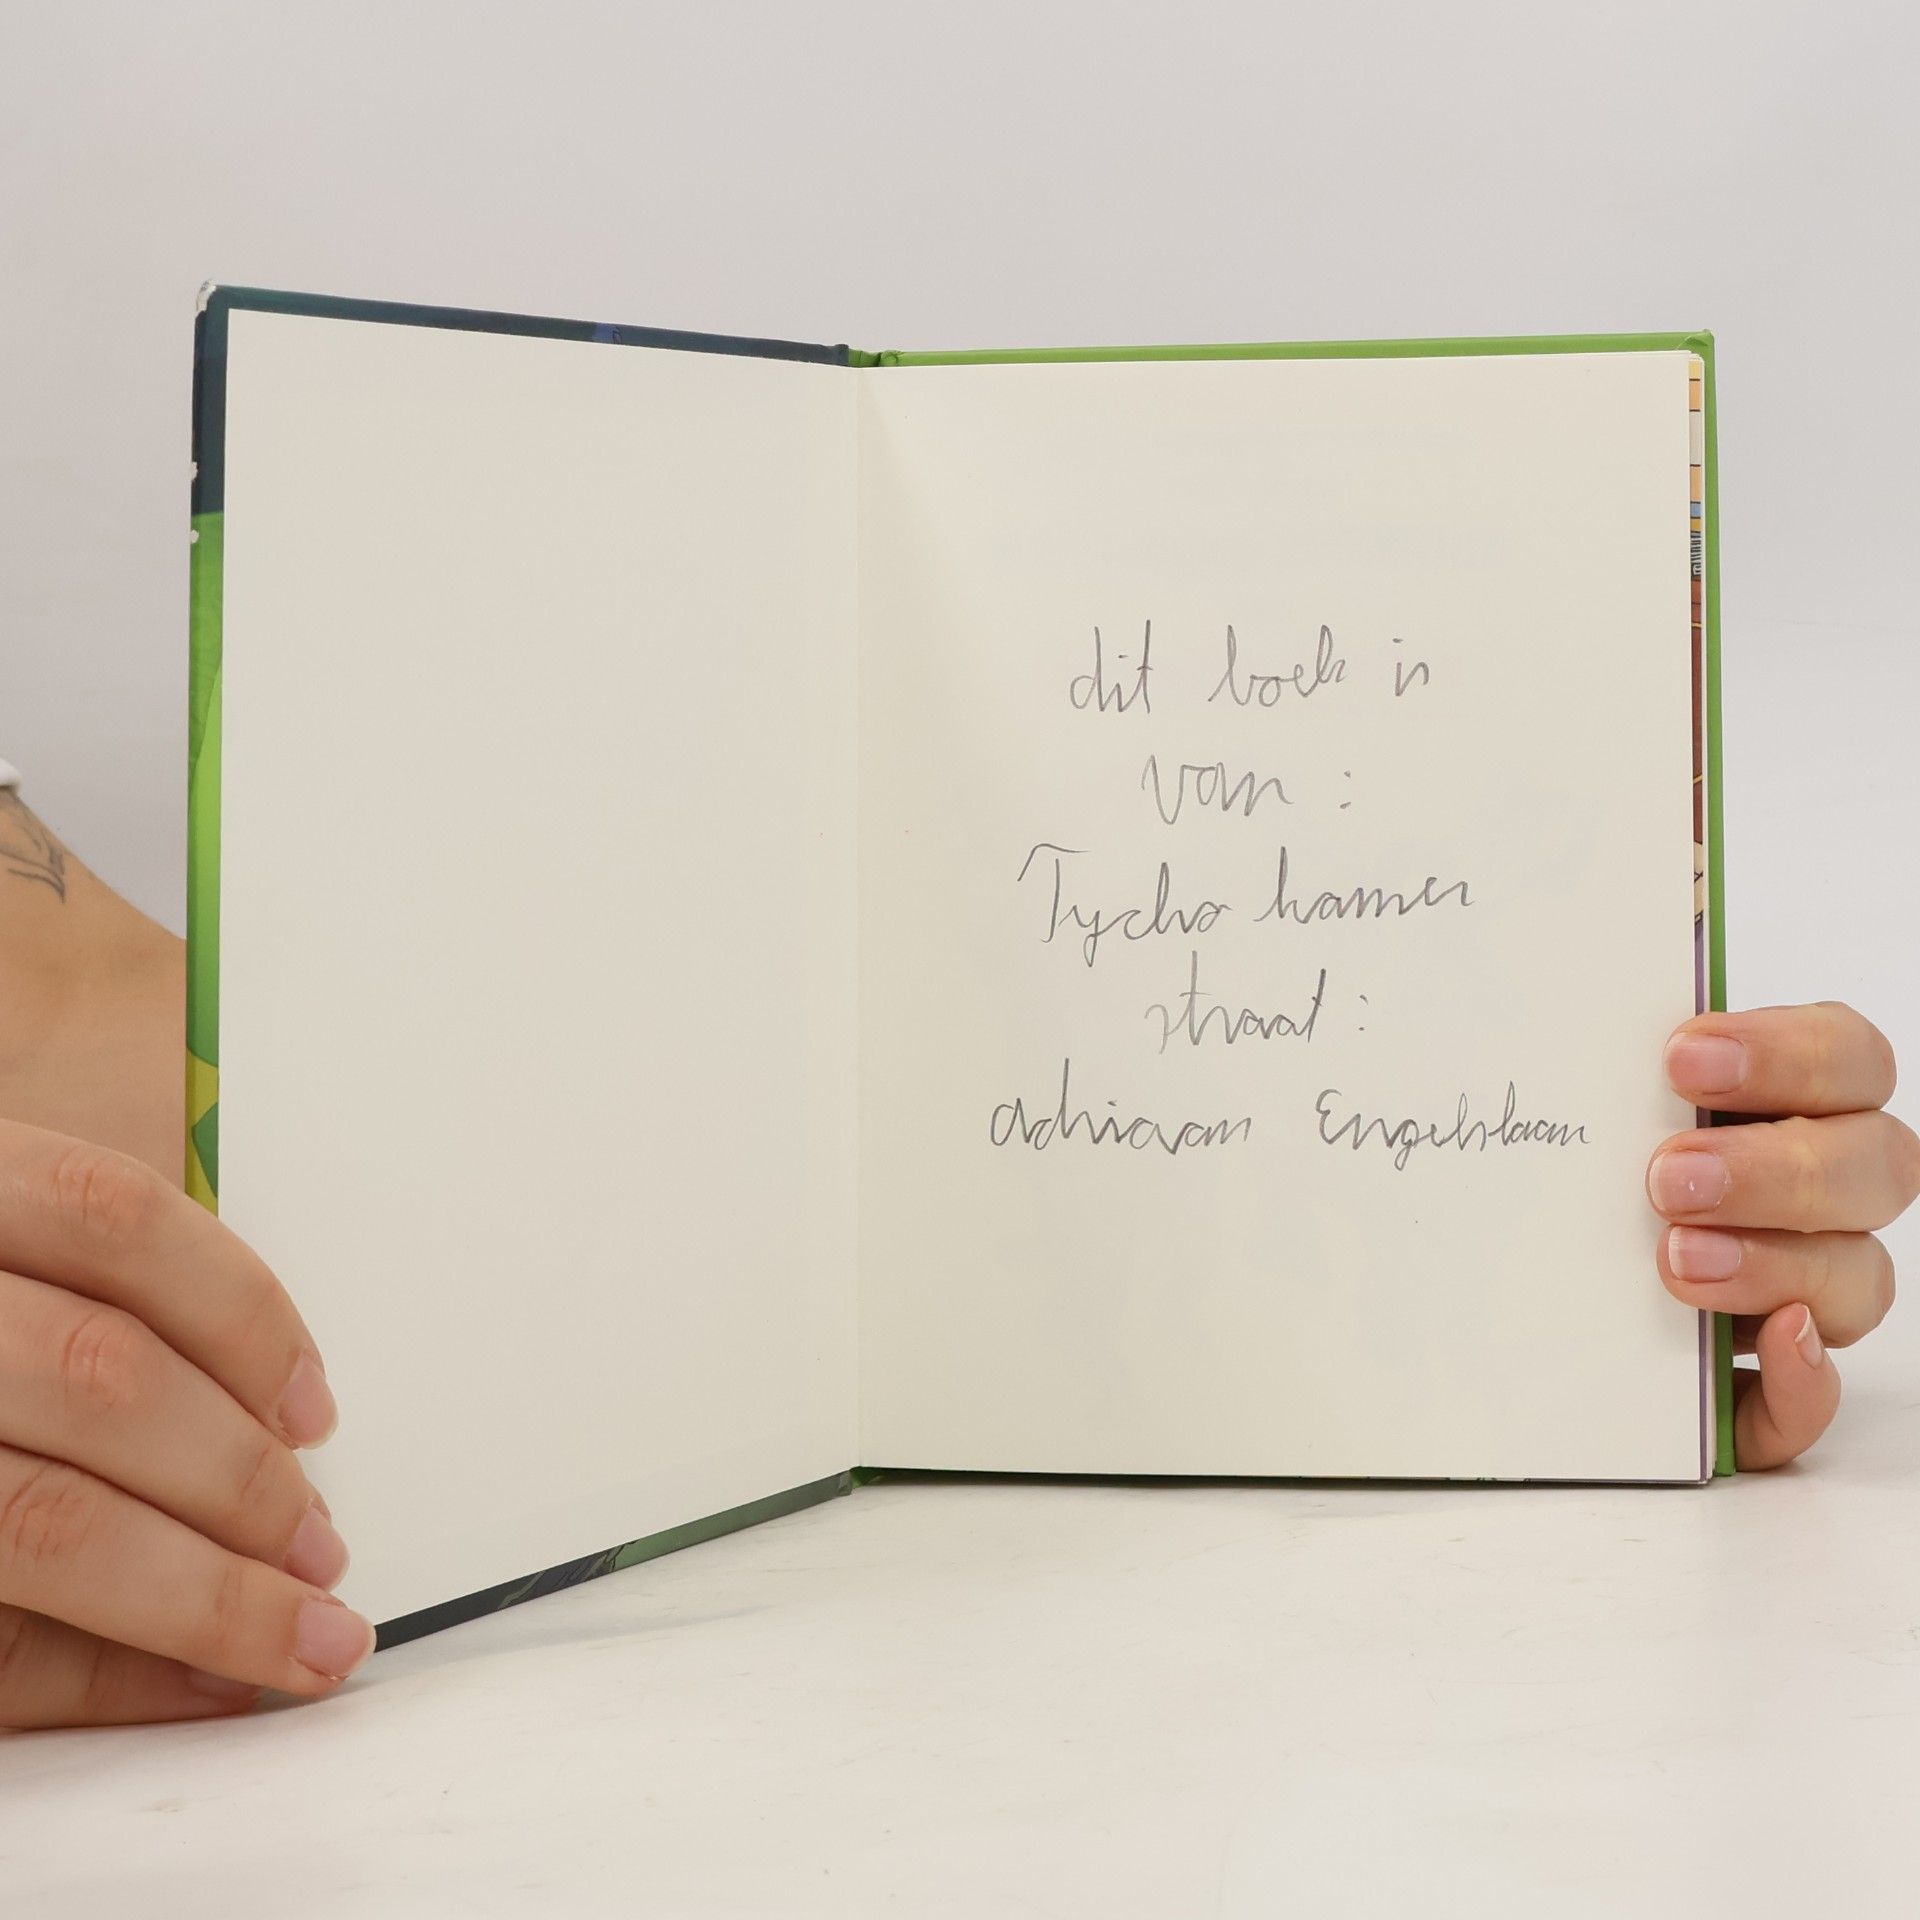 dit boek is
van :
Tycho hamer
straat :
adriaan Engelslaan